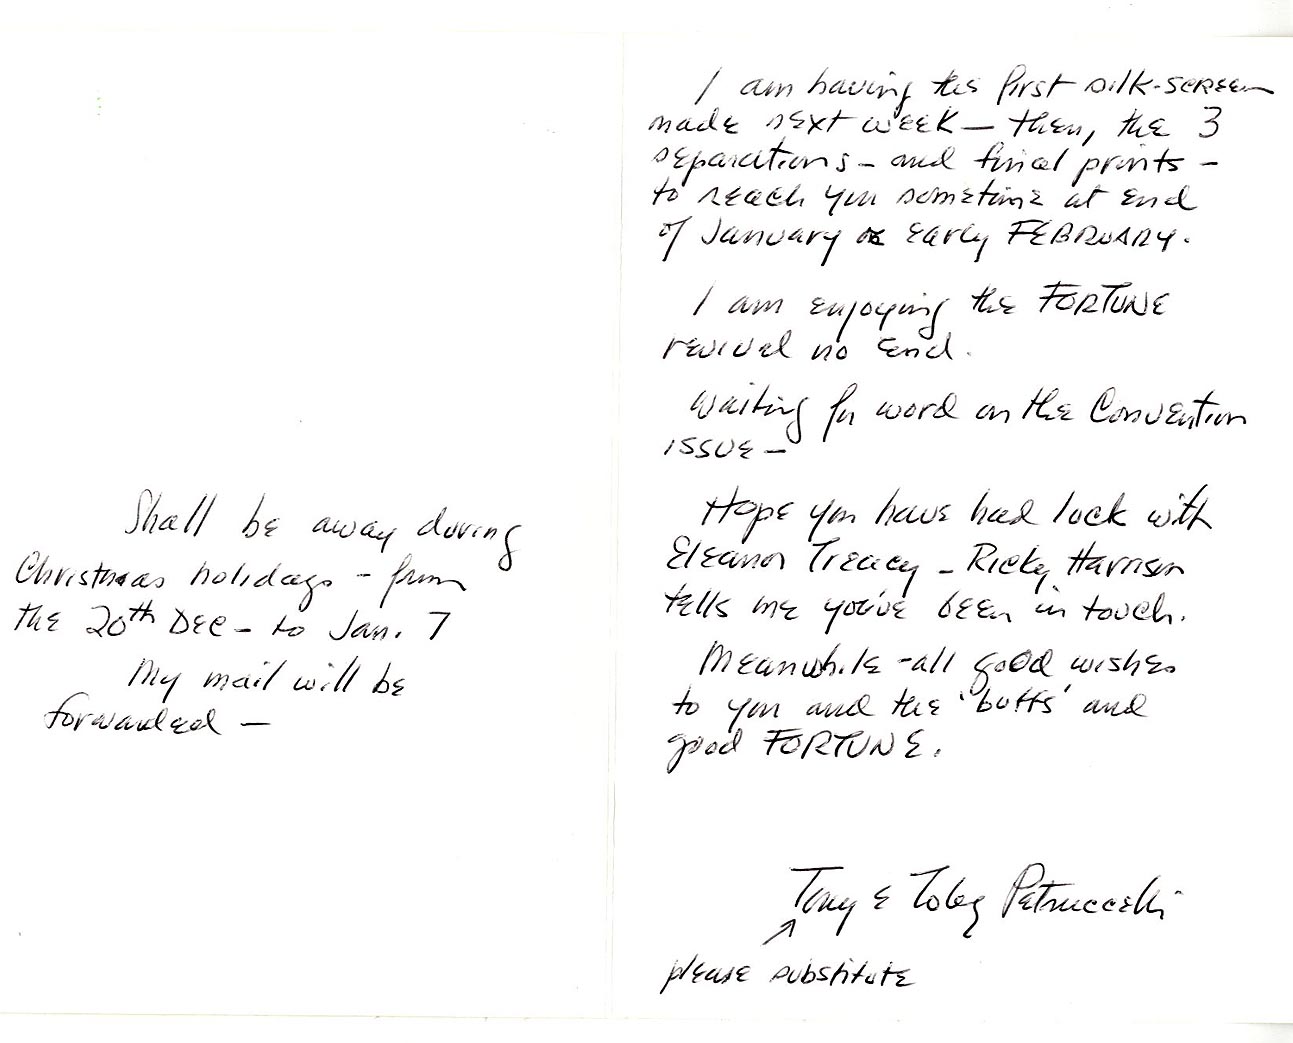 Shall be away during
Christmas holidays - from
the 20th Dec - to Jan. 7
My mail will be
forwarded —
I am having the first silk-screen
made next week — then, the 3
separations - and final prints -
to reach you sometime at end
of January or early FEBRUARY.
I am enjoying the FORTUNE
revival no end.
Waiting for word on the Convention
issue —
Hope you have had luck with
Eleanor Treacy - Ricky Harrison
tells me you've been in touch.
Meanwhile - all good wishes
to you and the 'buffs' and
good FORTUNE.
Tony & Toby Petruccelli
please substitute